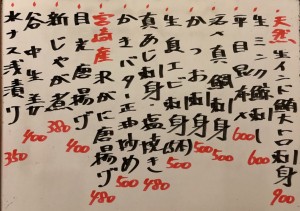 天然生インド鮪大トロ刺身 900
生ミンク鯨刺し 600
平目昆布〆 600
活〆真鯛刺身 500
かつお刺身 500
生身エビ刺
真あじ刺身・塩焼き 480
かきバター正油炒め 500
宮崎産 沢がに唐揚げ 480
目光唐揚げ 400
新じゃが煮 380
谷中生姜 400
水ナス浅漬り 350